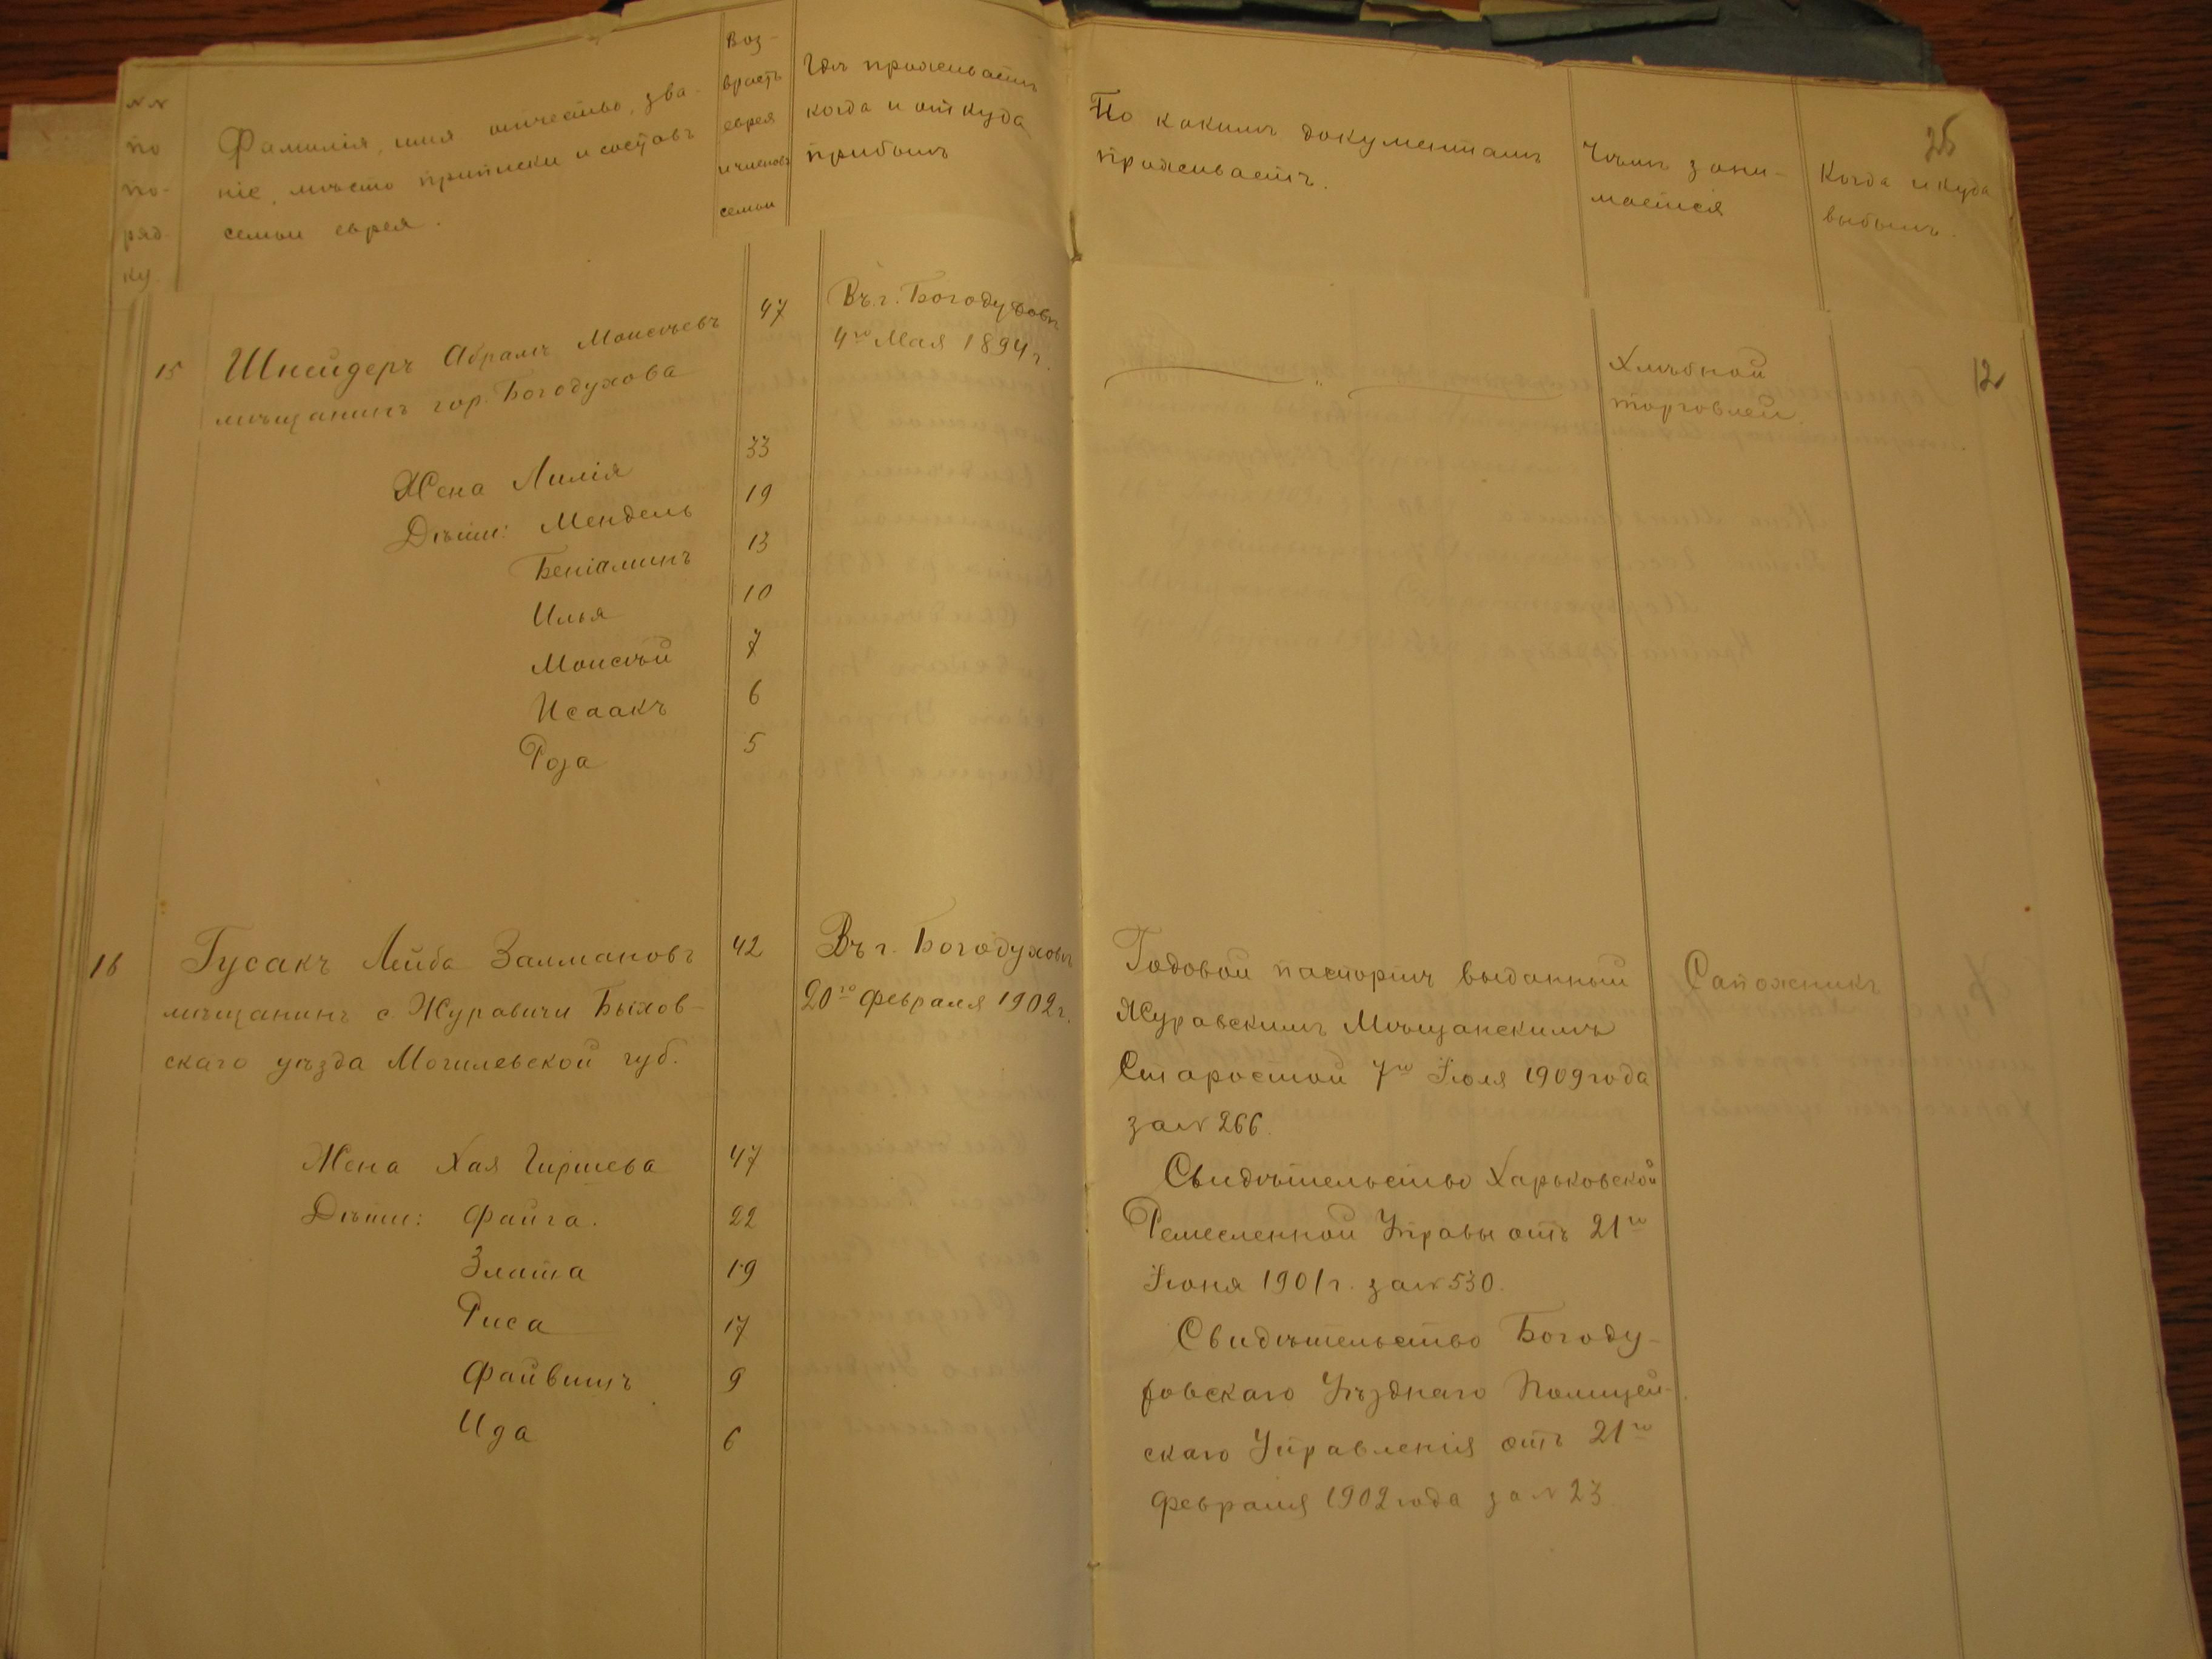 №№
по
по-
ряд
ку.
Фамилія, имя отчество, зва-
ніе, мѣсто приписки и составъ
семьи еврея.
Воз-
врастъ
еврея
и членовъ
семьи
Гдѣ проживаетъ
когда и откуда
прибылъ
По какимъ документамъ
проживаетъ.
Чѣмъ зани-
мается
Когда и куда
выбылъ.
26
15 Шнейдеръ Абрамъ Моисѣевъ 47 Въ г. Богодуховѣ
мѣщанинъ гор. Богодухова 4го Мая 1894 г. „
Хлѣбной
торговлей.
12
Жена Лилія 33
Дѣти: Мендель 19
Беніаминъ 13
Илья 10
Моисѣй 7
Исаакъ 6
Роза 5
16 Гусакъ Лейба Залмановъ 42 Въ г. Богодуховѣ Годовой паспортъ выданный Сапожникъ
мѣщанинъ с. Журавичи Быхов- 20го февраля 1902 г. Журавскимъ Мѣщанскимъ
скаго уѣзда Могилевской губ. Старостой 7го Іюля 1909 года
за № 266.
Жена Хая Гиршева 47 Свидѣтельство Харьковской
Дѣти: Файга. 22 Ремесленной Управы отъ 21го
Злата 19 Іюня 1901 г. за № 530.
Риса 17 Свидѣтельство Богоду-
Файвишъ 9 ховскаго Уѣзднаго Полицей-
Ида 6 скаго Управленія отъ 21го
февраля 1902 года за № 23